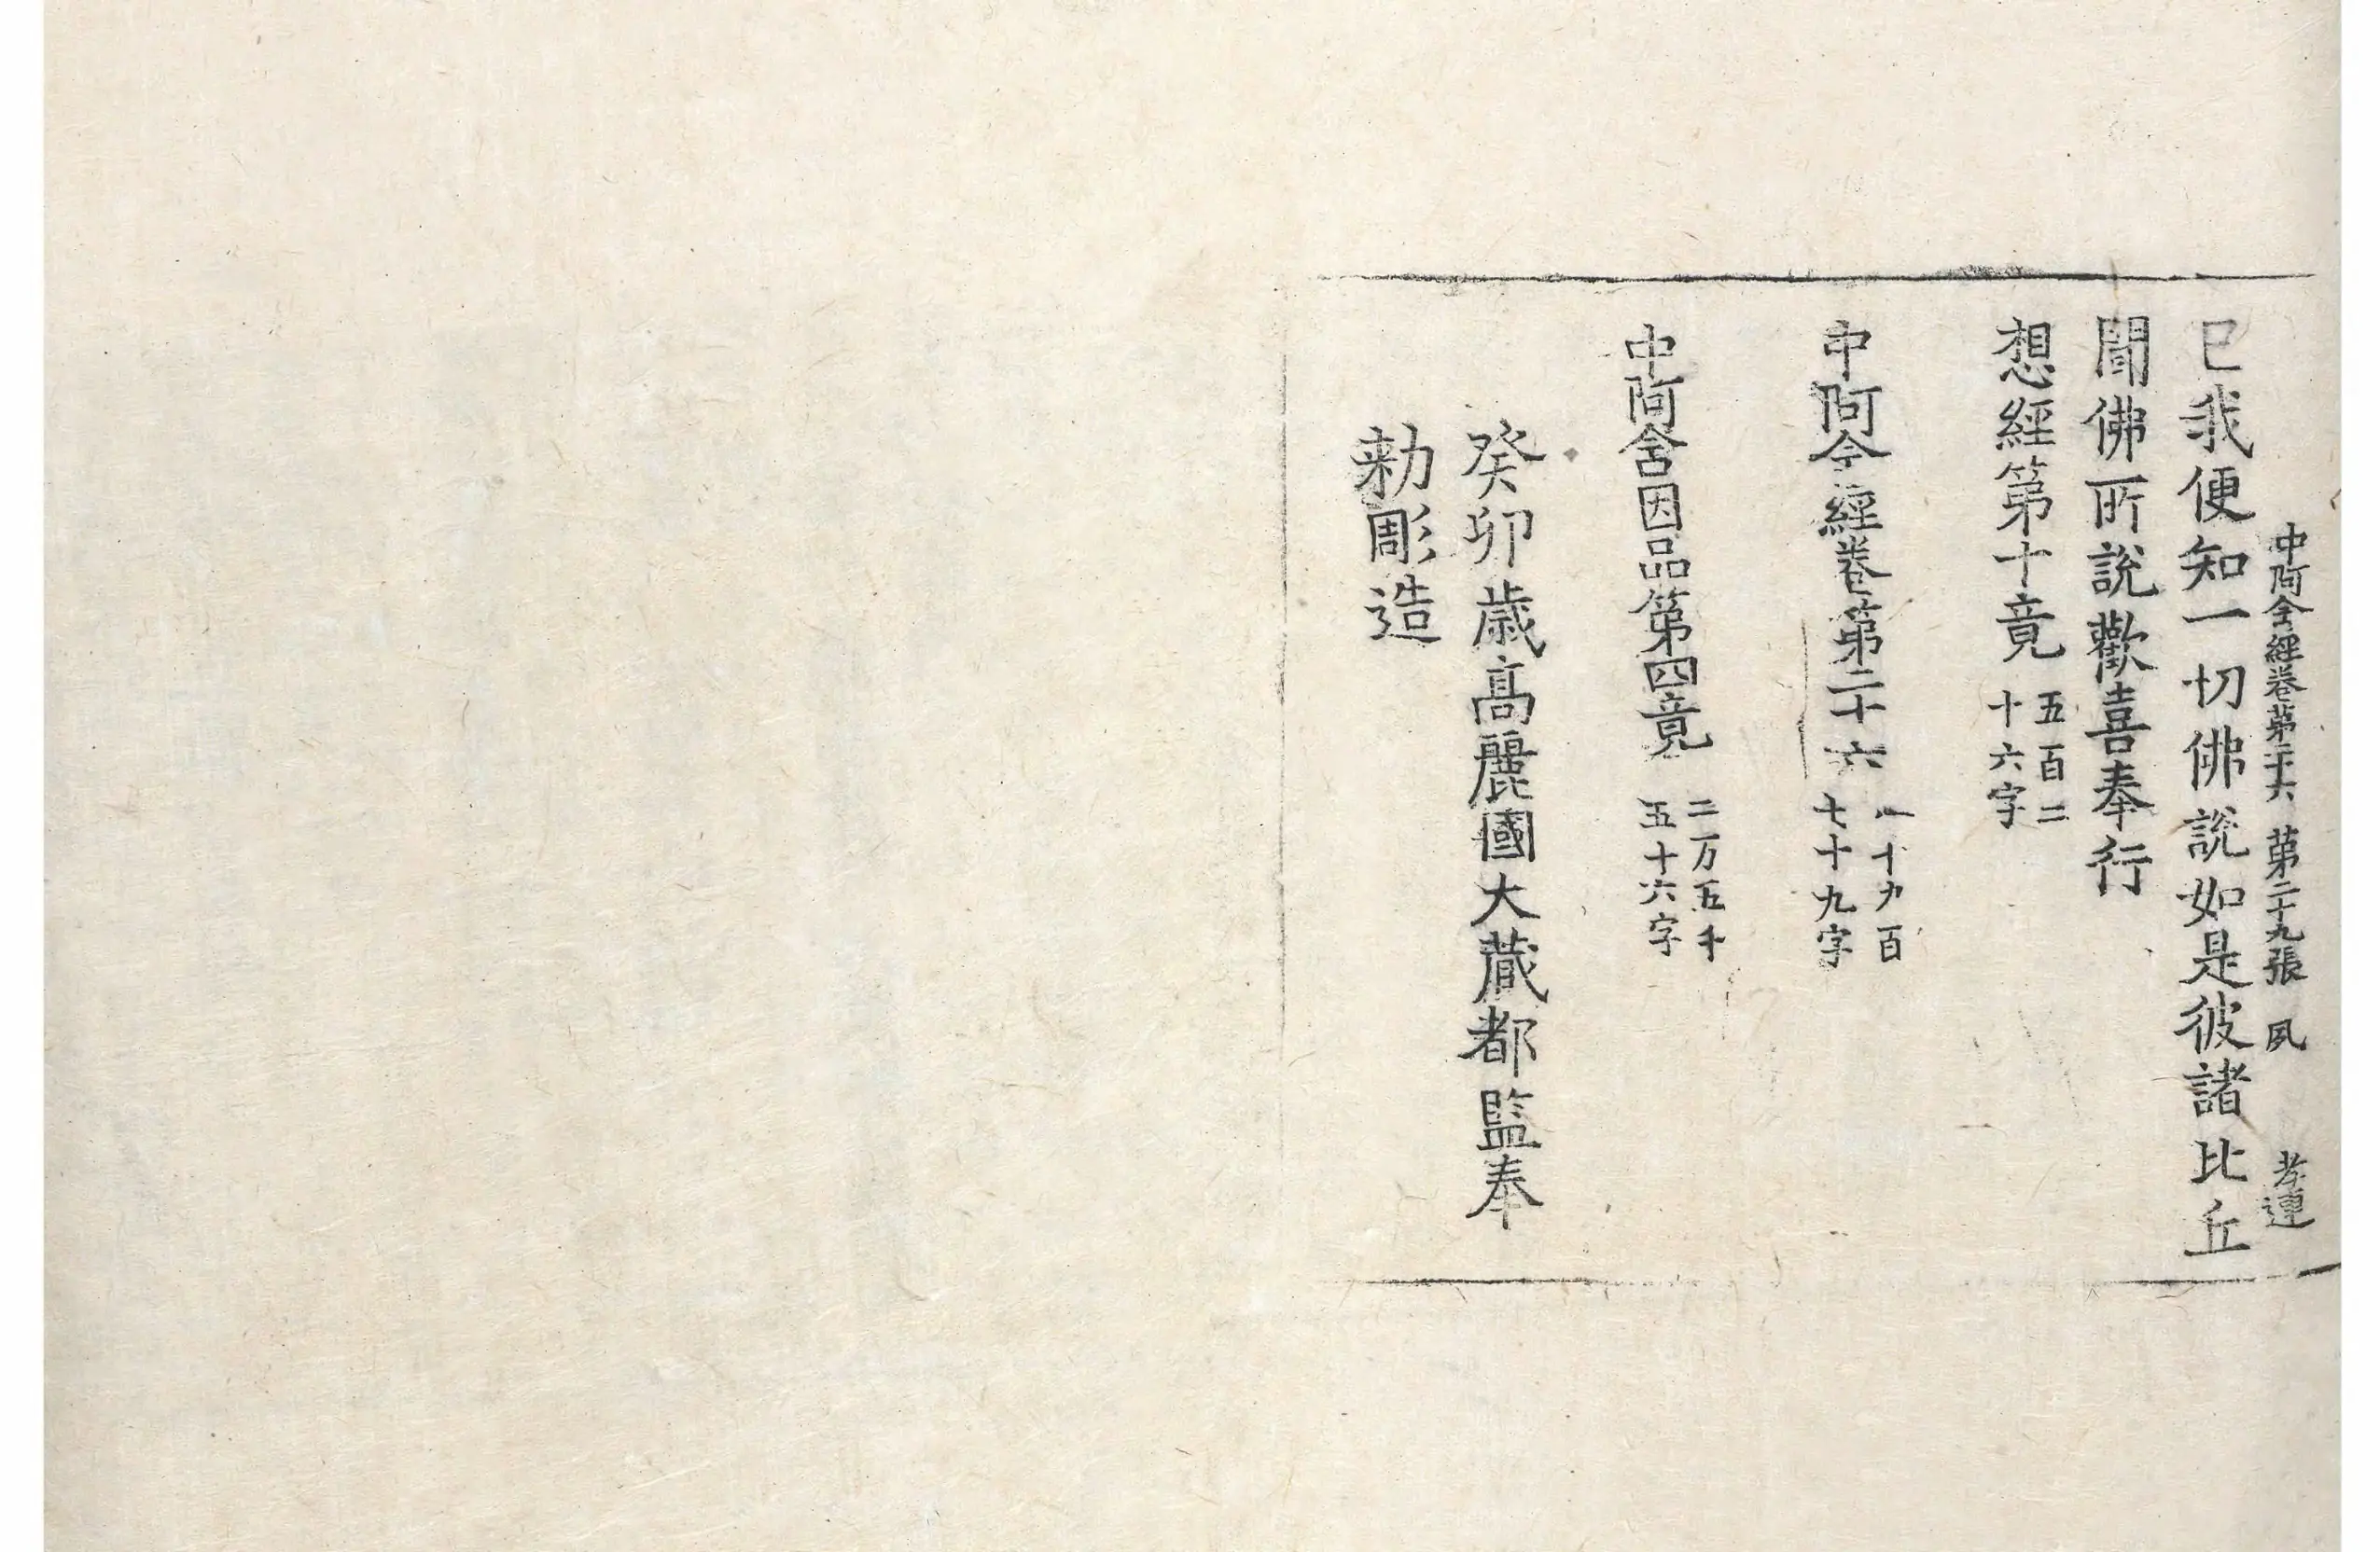 中阿含經卷第二十六 第二十九張 夙 孝連
已我便知一切佛說如是彼諸比丘
聞佛所說歡喜奉行
想經第十竟 五百二
十六字
中阿含經卷第二十六 八千九百
七十九字
中阿含因品第四竟 二万五千
五十六字
癸卯歲高麗國大藏都監奉
勅彫造